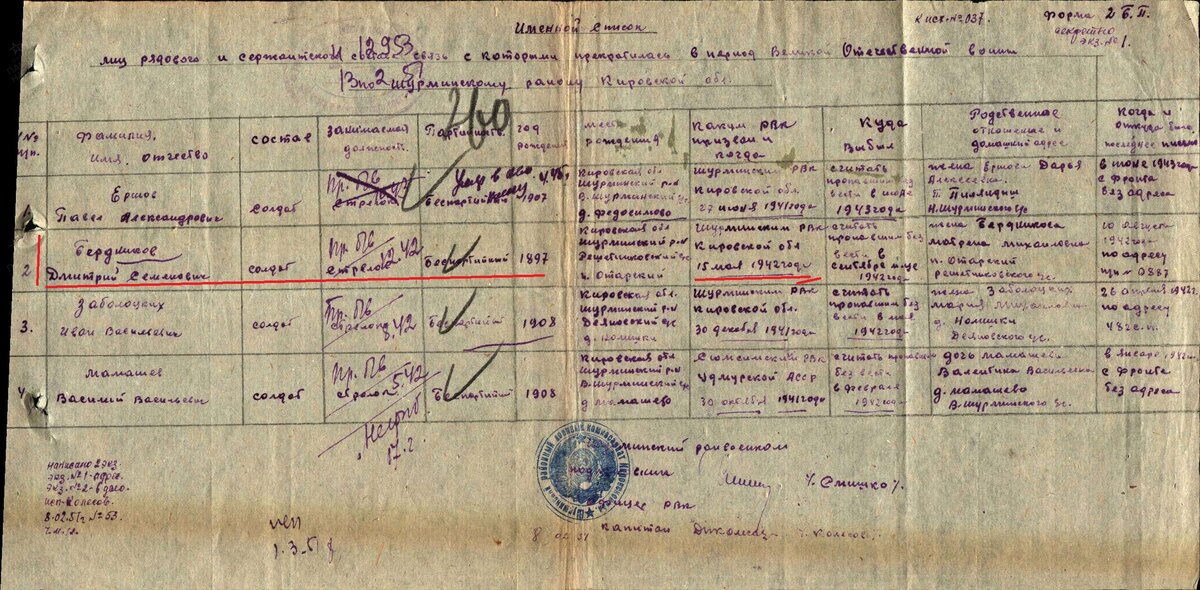 К исх. № 037.
Форма 2 Б.П.
секретно
экз. № 1.
Именной список
лиц рядового и сержантского состава связь с которыми прекратилась в период Великой Отечественной войны
по Шурминскому району Кировской обл.
260
№№ п/п.
Фамилия, имя, отчество
состав
занимаемая должность
Партийность
год рождения
место рождения
Каким РВК призван и когда
Куда выбыл
Родственное отношение и домашний адрес
Когда и откуда было последнее письмо
Ершов
Павел Александрович
солдат
Пр. ПВ
стрелок
Беспартийный
1907
Кировская обл.
Шурминский р-н
В. Шурминский с/с
д. Федосимово
Шурминским РВК
Кировской обл.
27 июня 1941 года
считать
пропавшим без
вести в июле
1943 года
жена Ершова Дарья
Алексеевна
в июне 1943 года
с фронта
без адреса
2
Бердников
Дмитрий Семенович
солдат
Пр. ПВ
стрелок
12.42
Беспартийный
1897
Кировская обл
Шурминский р-н
Решетниковский с/с
п. Отарский
Шурминским РВК
Кировской обл
15 мая 1942 года
считать
пропавшим без
вести в
сентябре м-це
1942 года
жена Бердникова
Маврена Михайловна
п. Отарский
Решетниковского с/с.
10 августа
1942 года
по адресу
ппл № 0887
3.
Заболоцких
Иван Васильевич
солдат
Пр. ПВ
стрелок
5.42
Беспартийный
1908
Кировская обл.
Шурминский р-н
Деяновский с/с
д. Номишки
Шурминским РВК
Кировской обл.
30 декабря 1941 года
считать
пропавшим без
вести в мае
1942 года
жена Заболоцких
Мария Михайловна
д. Номишки
Деяновского с/с.
26 апреля 1942 г.
по адресу
482 с.п.
4
Мамашев
Василий Васильевич
солдат
Пр. ПВ
стрелок
5.42
Беспартийный
1908
Кировская обл
Шурминский р-н
В. Шурминский с/с
д. Мамашево
Сюмсинским РВК
Удмурской АССР
30 октября 1941 года
считать пропавшим
без вести
в феврале
1942 года
дочь Мамашева
Валентина Васильевна
д. Мамашево
В. Шурминского с/с.
в январе 1942 г.
с фронта
без адреса
17 г.
Написано 2 экз.
экз. № 1-адрес.
экз. № 2-в дело.
исп-Колесов
8.02.51 г. № 53.
райвоенком
подполковник
/. Смишко /.
РВК
капитан
1.3.51